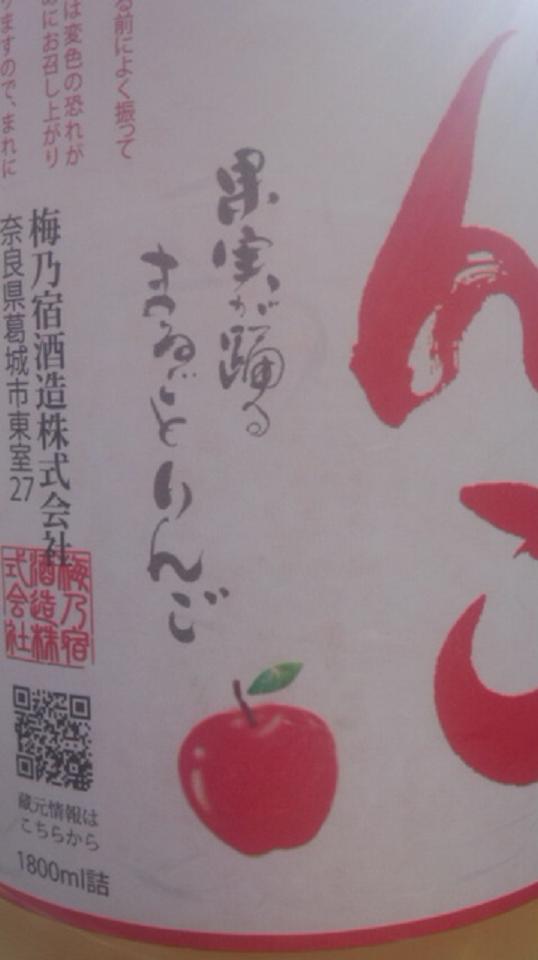 んご
果実が踊る
まるごとりんご
る前によく振って
は変色の恐れが
めにお召し上がり
りますので、まれに
梅乃宿酒造株式会社
奈良県葛城市東室27
梅乃宿
酒造株
式会社
蔵元情報は
こちらから
1800ml詰